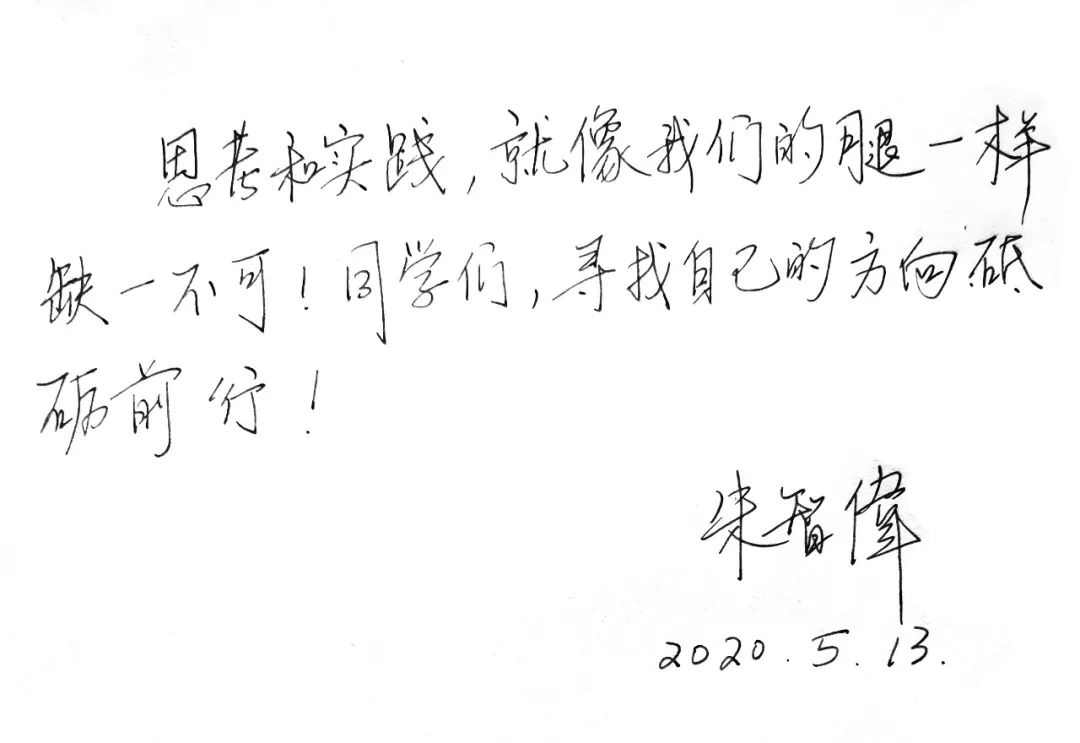 思考和实践,就像我们的腿一样
缺一不可!同学们,寻找自己的方向砥
砺前行!
朱智偉
2020.5.13.